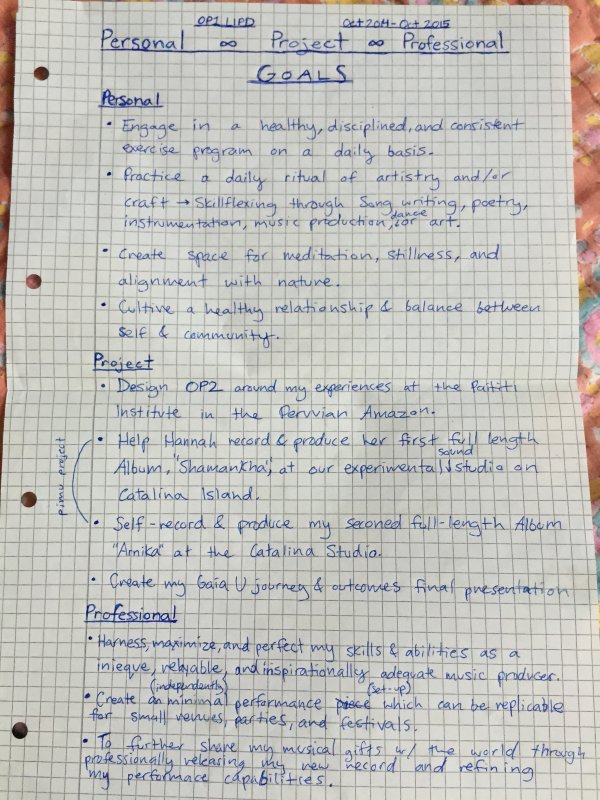 OP2 LIPD Oct 2014-Oct 2015
Personal ∞ Project ∞ Professional
GOALS
Personal
• Engage in a healthy, disciplined, and consistent
exercise program on a daily basis.
• Practice a daily ritual of artistry and/or
craft → Skillflexing through Song writing, poetry,
instrumentation, music production, dance or art.
• Create space for meditation, stillness, and
alignment with nature.
• Cultive a healthy relationship & balance between
self & community.
Project
• Design OP2 around my experiences at the Paititi
Institute in the Peruvian Amazon.
• Help Hannah record & produce her first full length
Album, "Shamankha", at our experimental sound studio on
Catalina Island.
pimu project
• Self-record & produce my seconed full-length Album
"Arnika" at the Catalina Studio.
• Create my Gaia U journey & outcomes final presentation
Professional
• Harness, maximize, and perfect my skills & abilities as a
inieque, relyable, and inspirationally adequate music producer.
• Create an (independently) minimal performance piece (set-up) which can be replicable
for small venues, parties, and festivals.
• To further share my musical gifts w/ the world through
professionally releasing my new record and refining
my performace capabilities.